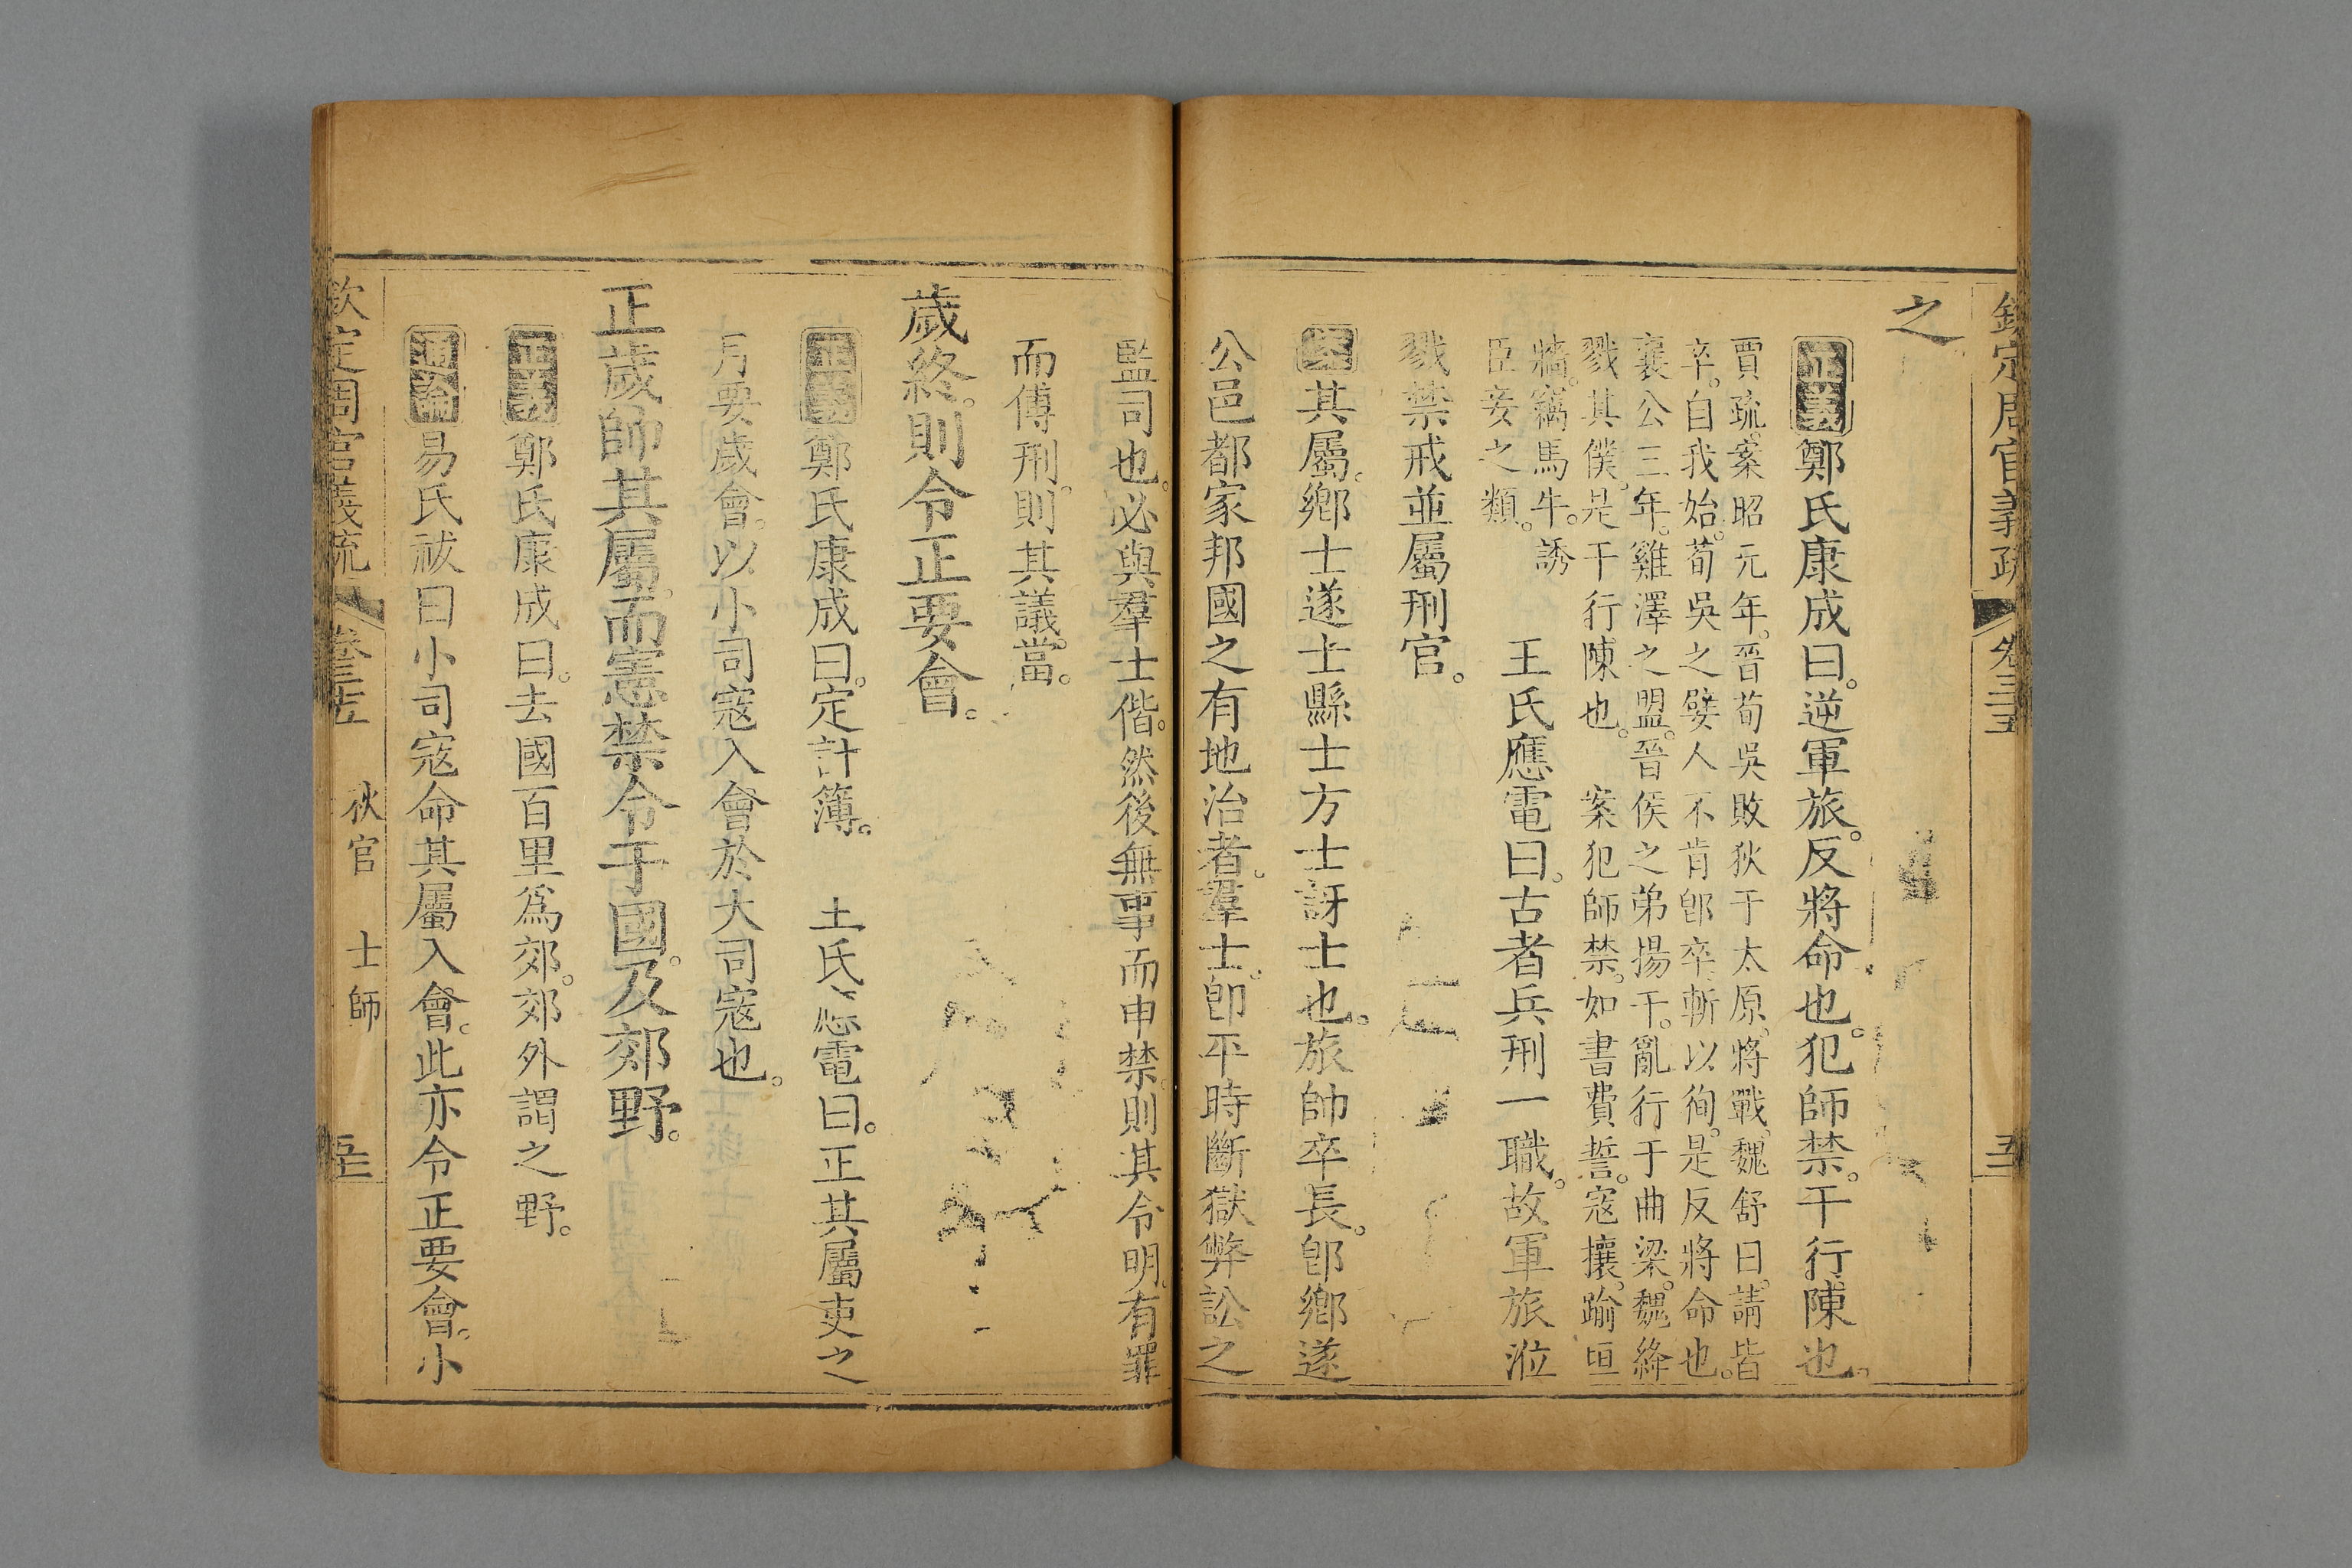 欽定周官義疏 卷三十五
之
正義鄭氏康成曰。逆軍旅。反將命也。犯師禁。干行陳也。
賈疏。案昭元年。晉荀吳敗狄于太原。將戰。魏舒曰。請皆
卒。自我始。荀吳之嬖人不肯卽卒。斬以徇。是反將命也。
襄公三年。雞澤之盟。晉侯之弟揚干。亂行于曲梁。魏絳
戮其僕。是干行陳也。 案犯師禁。如書費誓。寇攘。踰垣
牆。竊馬牛。誘
臣妾之類。
王氏應電曰。古者兵刑一職。故軍旅涖
戮禁戒並屬刑官。
案其屬。鄉士遂士縣士方士訝士也。旅帥卒長。卽鄉遂
公邑都家邦國之有地治者。羣士。卽平時斷獄弊訟之
監司也。必與羣士偕。然後無事而申禁。則其令明。有罪
而傅刑。則其議當。
歲終。則令正要會。
正義鄭氏康成曰。定計簿。 王氏應電曰。正其屬吏之
月要歲會。以小司寇入會於大司寇也。
正歲帥其屬。而憲禁令于國。及郊野。
正義鄭氏康成曰。去國百里爲郊。郊外謂之野。
通論易氏祓曰小司寇命其屬入會。此亦令正要會。小
欽定周官義疏 卷三十五 秋官 士師